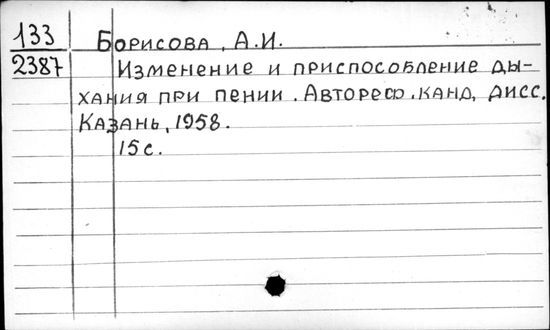 133 Борисова, А.И.
2387 Изменение и приспособление ды-
хания при пении. Автореф. канд. дисс.
Казань, 1958.
15 с.